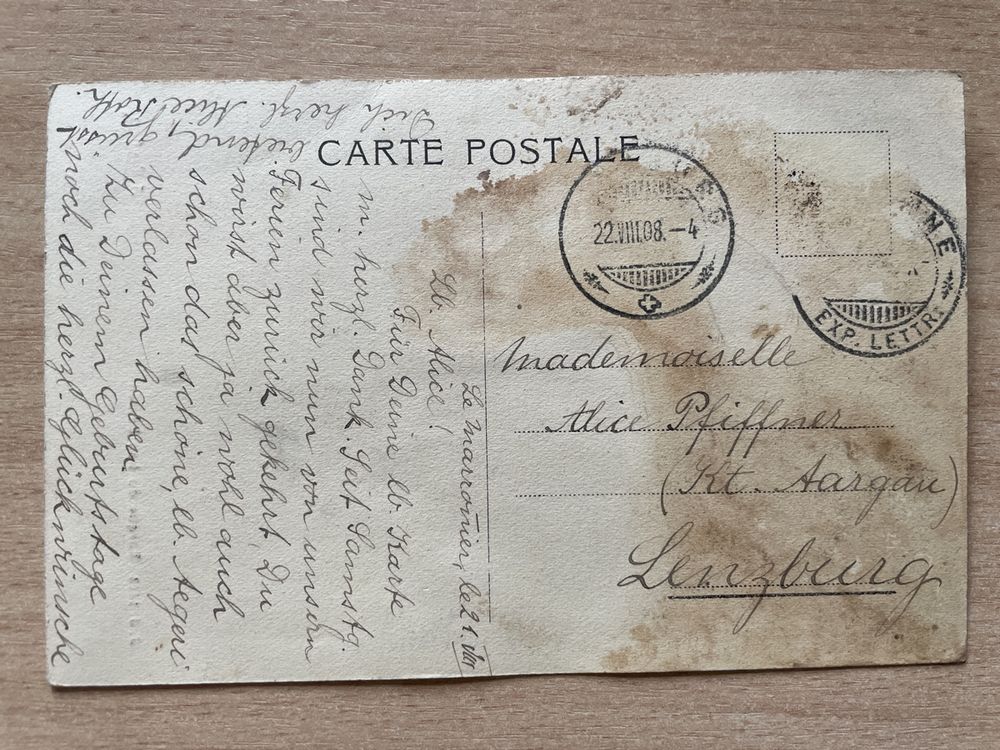 CARTE POSTALE
22.VIII.08.-4
NNE
EXP. LETTR.
Mademoiselle
Alice Pfiffner
(Kt. Aargau)
Lenzburg
Le Marronier, le 21. VIII
Lb. Alice!
Für Deine lb. Karte
m. herzl. Dank. Seit Samstg.
sind wir nun von unsern
Ferien zurück gekehrt. Du
wirst aber ja wohl auch
schon das schöne, lb. Aegeri
verlassen haben.
Zu Deinem Geburtstage
noch die herzl. Glückwünsche
bietend, grüsst
Dich herzl. Alice Roth.